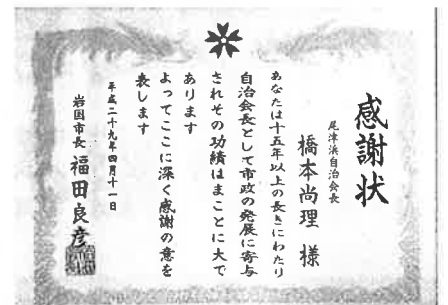 感謝状
尾津浜自治会長
橋本尚理 様
あなたは十五年以上の長きにわたり
自治会長として市政の発展に寄与
されその功績はまことに大で
あります
よってここに深く感謝の意を
表します
平成二十九年四月十一日
岩国市長 福田良彦